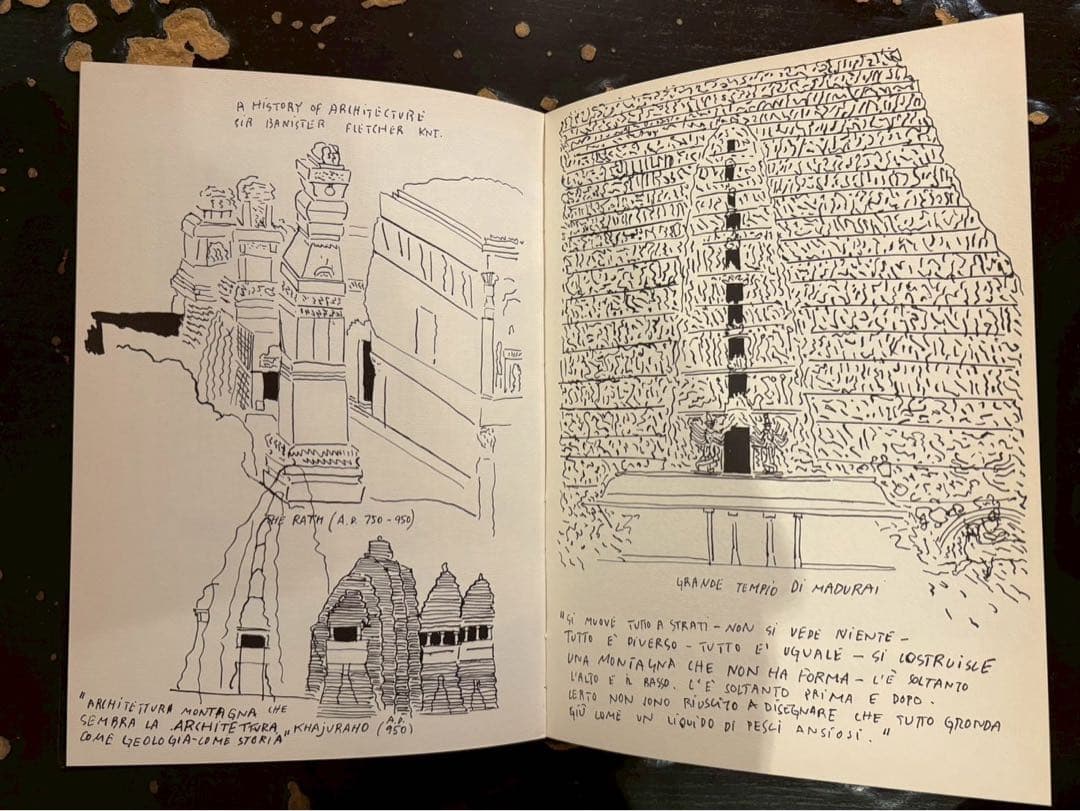 A HISTORY OF ARCHITECTURE
SIR BANISTER FLETCHER KNT.
THE RATH (A.D. 750-950)
"ARCHITETTURA MONTAGNA CHE
SEMBRA LA ARCHITETTURA
COME GEOLOGIA-COME STORIA"
KHAJURAHO (A.D. 950)
GRANDE TEMPIO DI MADURAI
"SI MUOVE TUTTO A STRATI - NON SI VEDE NIENTE -
TUTTO E' DIVERSO - TUTTO E' UGUALE - SI COSTRUISCE
UNA MONTAGNA CHE NON HA FORMA - C'È SOLTANTO
L'ALTO E IL BASSO. C'È SOLTANTO PRIMA E DOPO.
CERTO NON SONO RIUSCITO A DISEGNARE CHE TUTTO GRONDA
GIÙ COME UN LIQUIDO DI PESCI ANSIOSI."